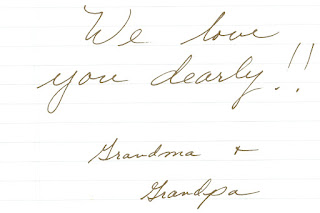 We love
you dearly!!
Grandma +
Grandpa